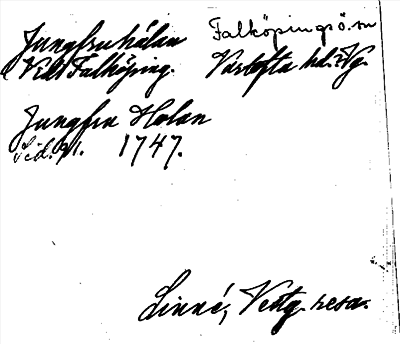 Jungfruhålan Falköpings ö. sn
Vid Falköping. Vartofta hd. Vg.
Jungfru Holan
Sid. 91. 1747.
Linné, Vestg. resa.